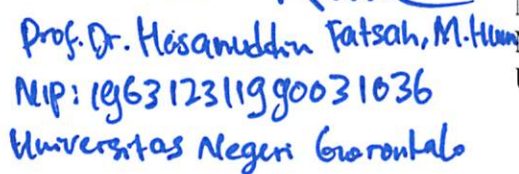 Prof. Dr. Hasanuddin Fatsah, M.Hum
NIP: 196312311990031036
Universitas Negeri Gorontalo